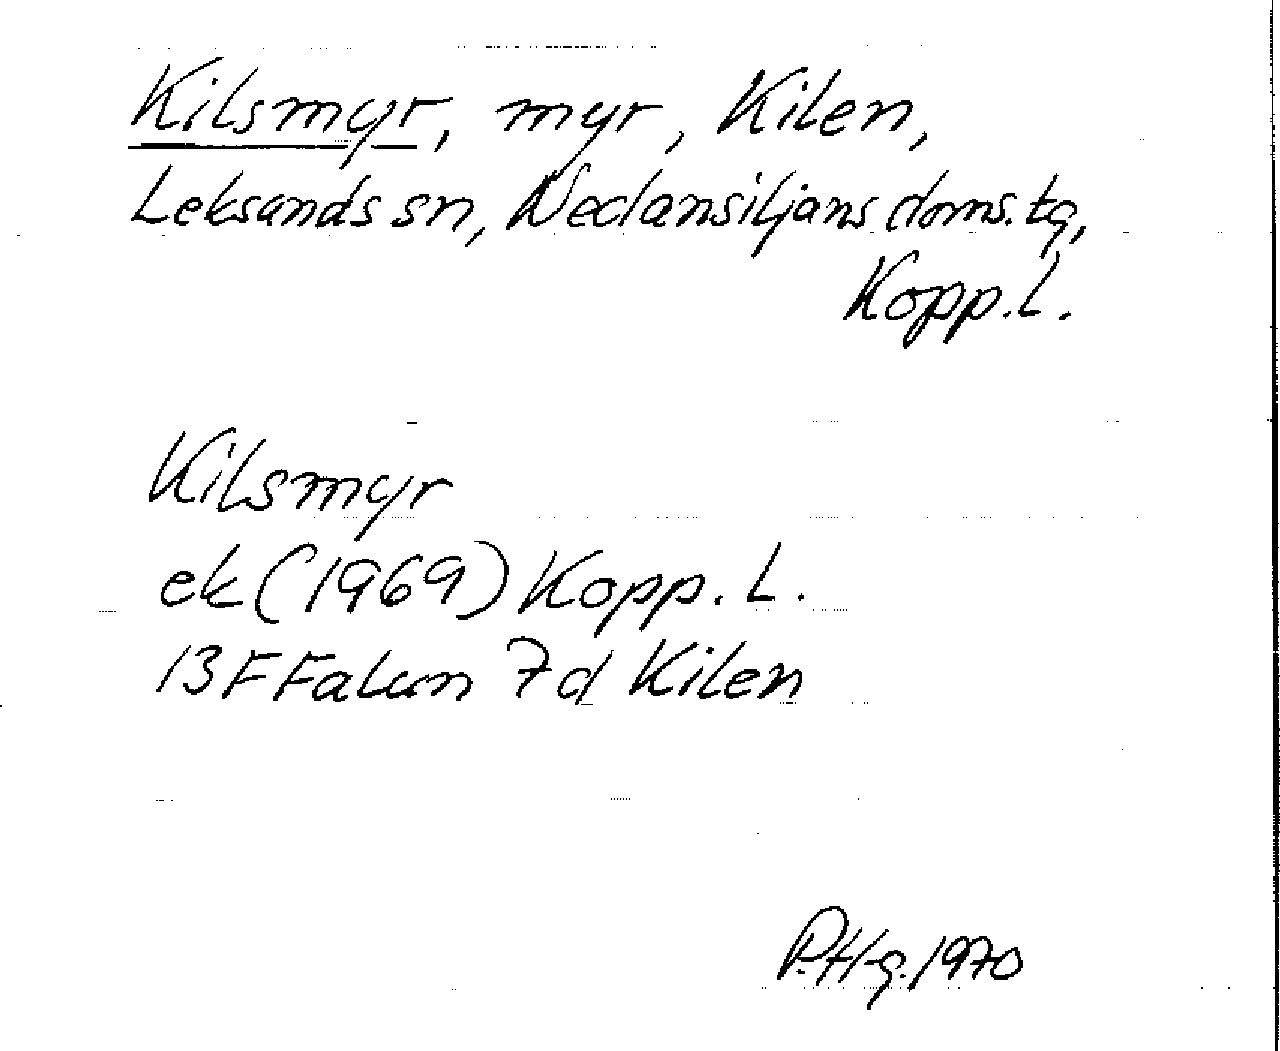 Kilsmyr, myr, Kilen,
Leksands sn, Nedansiljans doms. tg,
Kopp. L.
Kilsmyr
ek (1969) Kopp. L.
13F Falun 7d Kilen
P.Hg. 1970